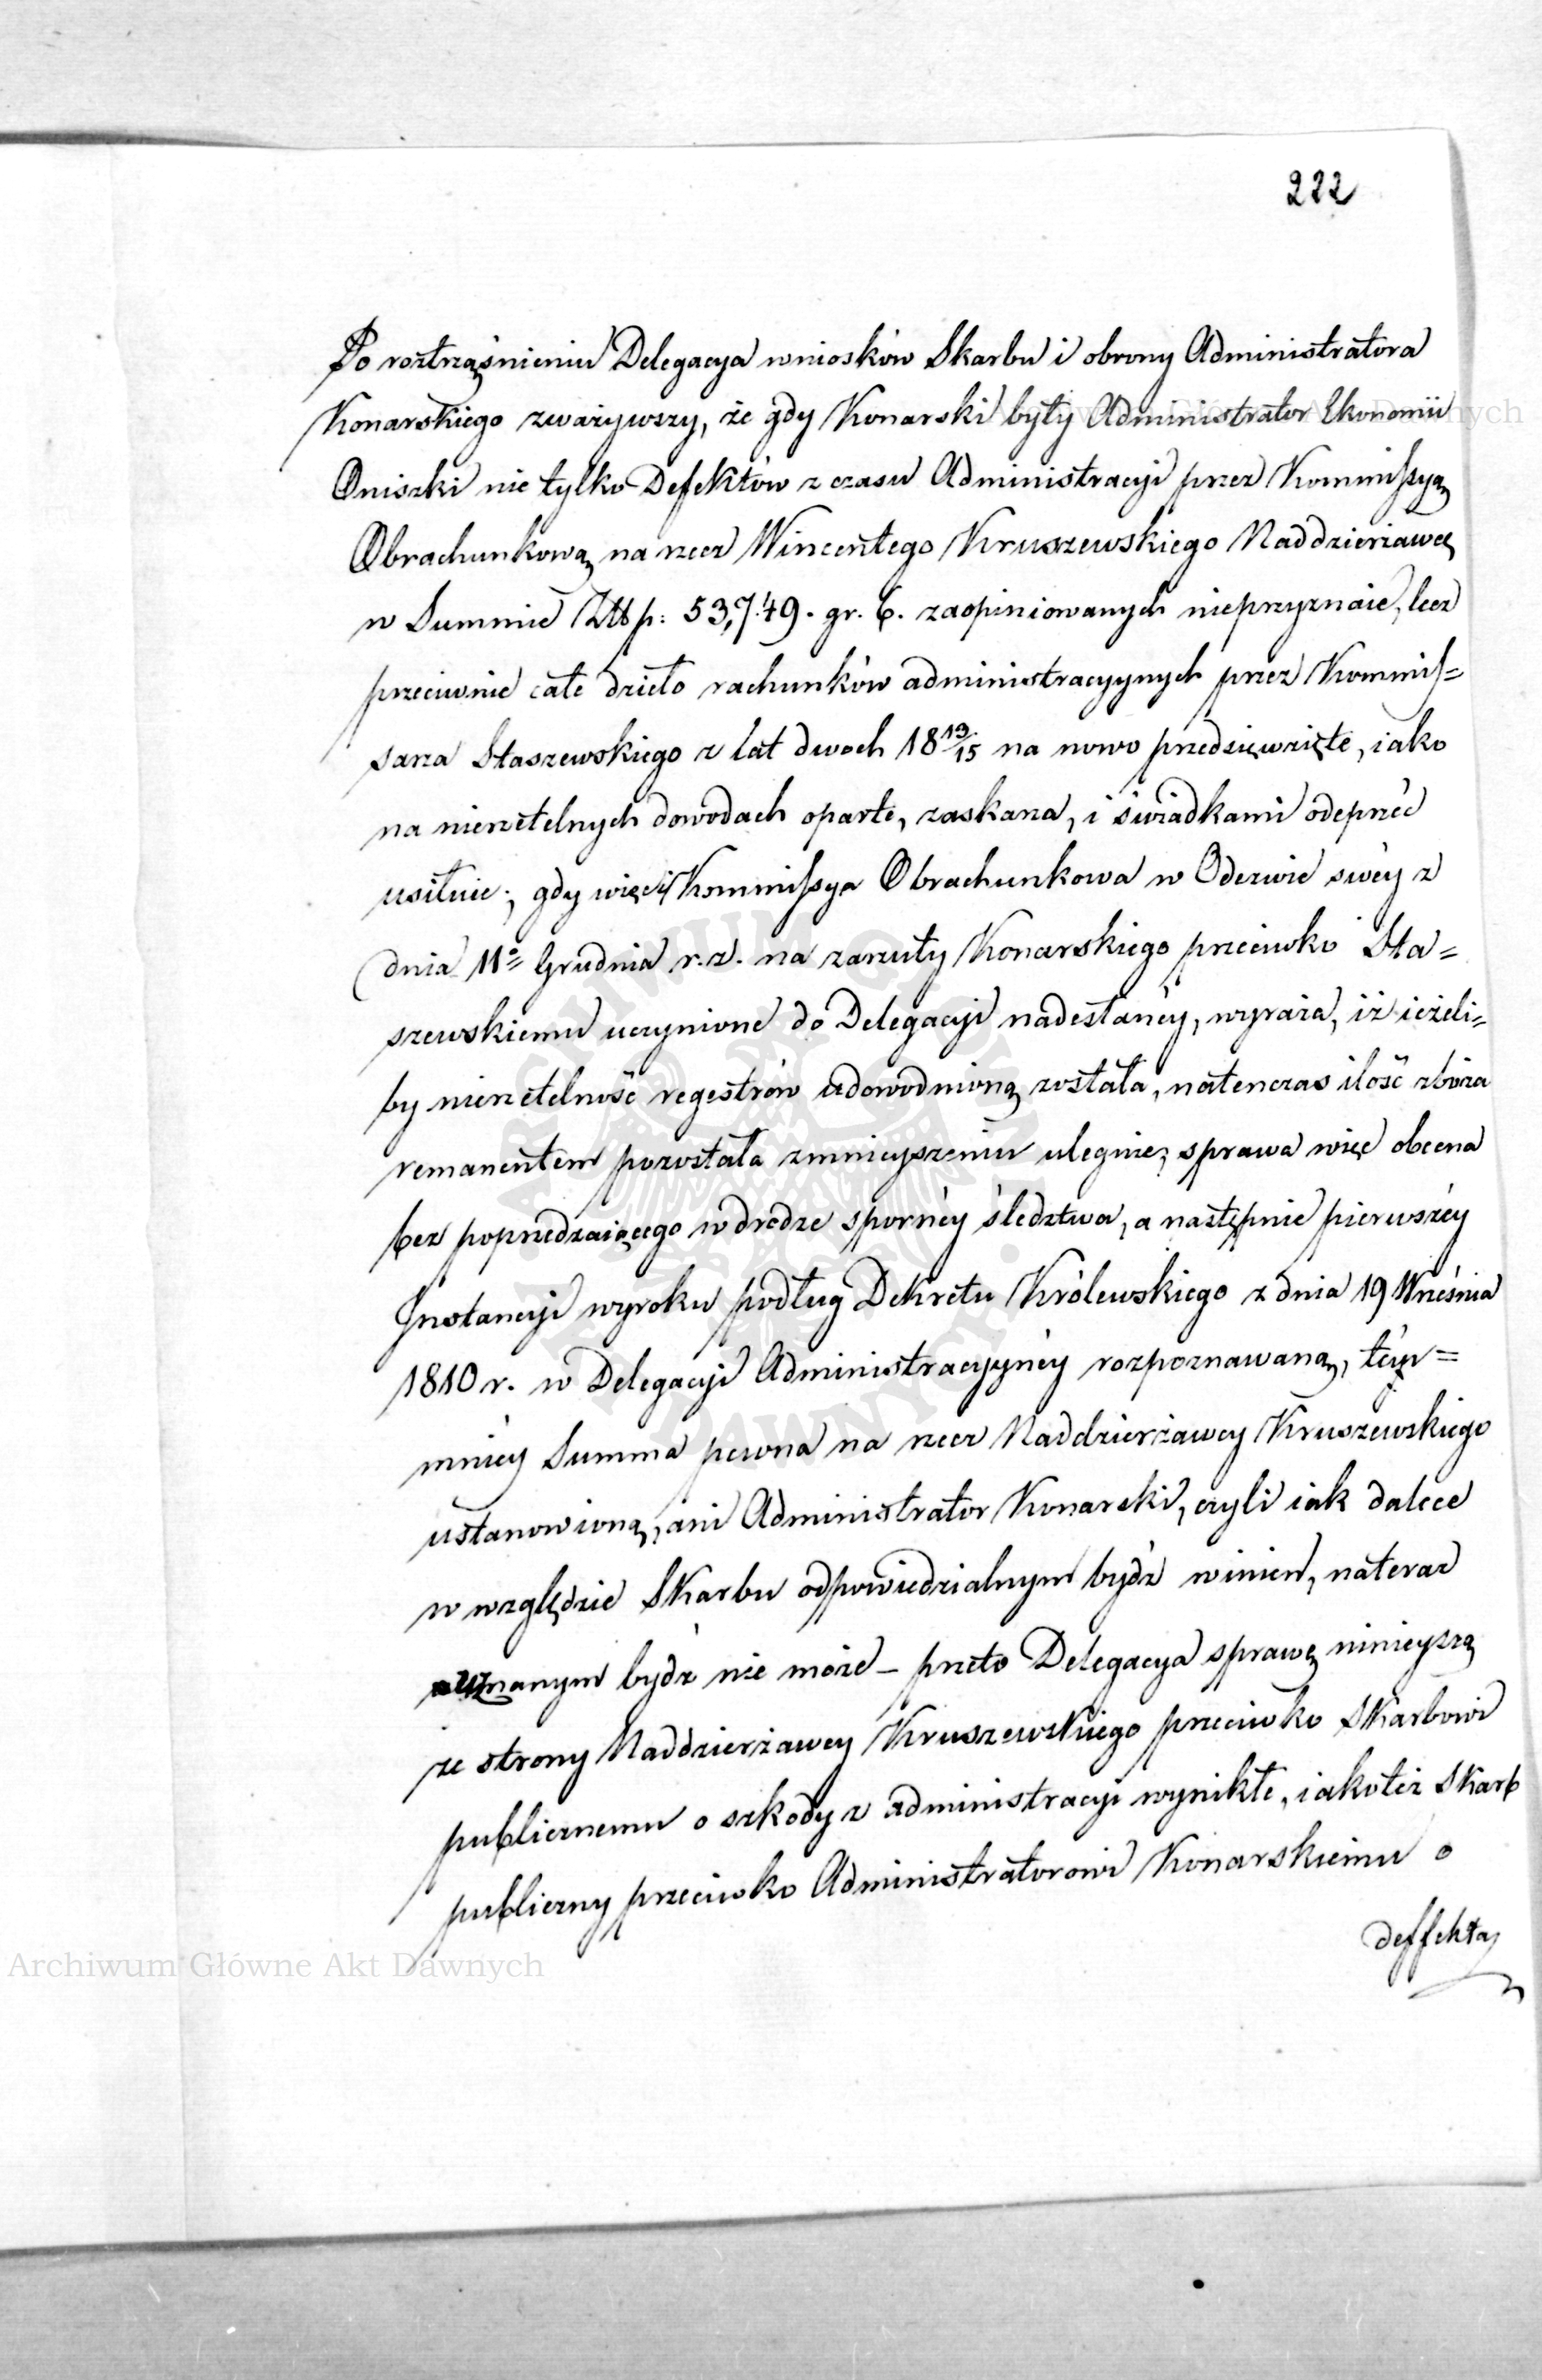 222
Po roztrząśnieniu Delegacya wniosków Skarbu i obrony Administratora
Konarskiego zważywszy, że gdy Konarski były Administrator Ekonomii
Oniszki nie tylko Defektów z czasu Administracyi przez Kommissyą
Obrachunkową na rzecz Wincentego Kruszewskiego Naddzierżawcę
w Summie Złłp: 53,749. gr. 6. zaopiniowanych nieprzyznaie, lecz
przeciwnie całe dzieło rachunków administracyynych przez Kommis=
sarza Staszewskiego z lat dwóch 18 13/15 na nowo przedsięwzięte, iako
na nierzetelnych dowodach oparte, zaskarża, i świadkami odeprzéć
usiłuie; gdy więc Kommissya Obrachunkowa w Odezwie swéy z
dnia 11º Grudnia r. z. na zarzuty Konarskiego przeciwko Sta=
szewskiemu uczynione do Delegacyi nadesłanéy, wyraża, iż ieżeli=
by nierzetelność regestrów udowodnioną została, natenczas ilość zboża
remanentem pozostała zmnieyszeniu ulegnie; sprawa więc obecna
bez poprzedzaiącego w drodze spornéy śledztwa, a następnie pierwszéy
Instancyi wyroku podług Dekretu Królewskiego z dnia 19 Września
1810 r. w Delegacyi Administracyynéy rozpoznawaną, tém=
mniéy Summa pewna na rzecz Naddzierżawcy Kruszewskiego
ustanowioną, ani Administrator Konarski, czyli iak dalece
w względzie Skarbu odpowiedzialnym bydź winien, nateraz
uznanym bydź nie może – przeto Delegacya sprawę ninieyszą
ze strony Naddzierżawcy Kruszewskiego przeciwko Skarbowi
publicznemu o szkody z administracyi wynikłe, iakoteż Skarb
publiczny przeciwko Administratorowi Konarskiemu o
deffekta
Archiwum Główne Akt Dawnych